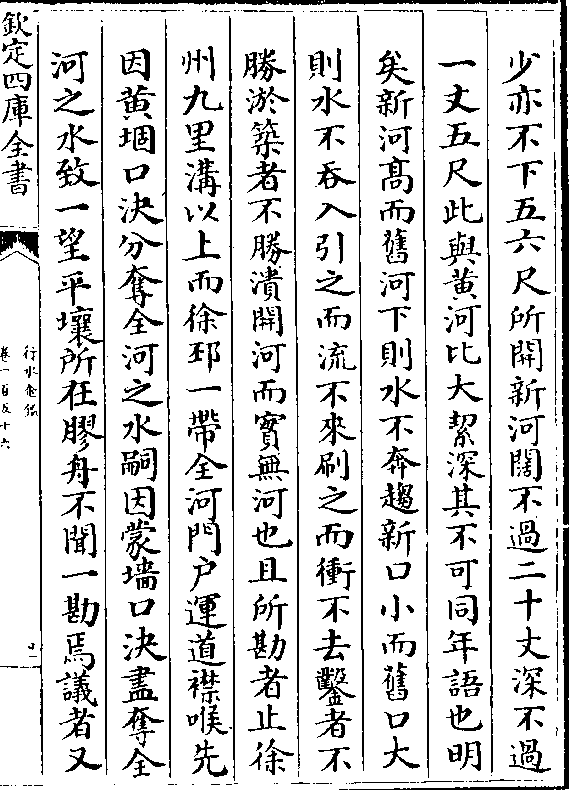 少亦不下五六尺所開新河闊不過二十丈深不過
一丈五尺此與黄河比大絜深其不可同年語也明
矣新河髙而舊河下則水不奔趨新口小而舊口大
則水不吞入引之而流不來刷之而衝不去鑿者不
勝淤築者不勝潰開河而實無河也且所勘者止徐
州九里溝以上而徐邳一帶全河門户運道襟喉先
因黄堌口決分奪全河之水嗣因蒙墻口決盡奪全
河之水致一望平壤所在膠舟不聞一勘焉議者又
欽定四庫全書
行水金鑑
卷一百五十六